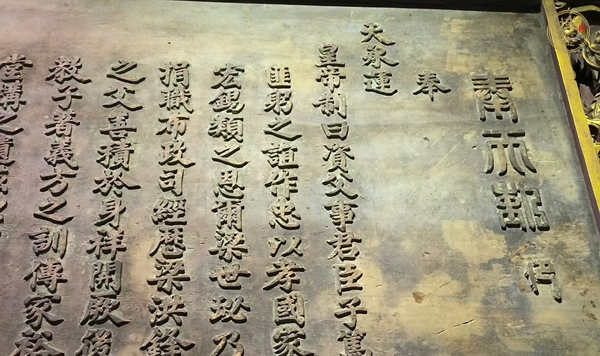 奉天誥命
奉
天承運
皇帝制曰資父事君臣子篤
匪躬之誼作忠以孝國家
宏錫類之恩爾梁世珌乃
捐職布政司經歷梁洪鋒
之父善積於身祥開厥後
教子著義方之訓傳家裕
堂構之遺